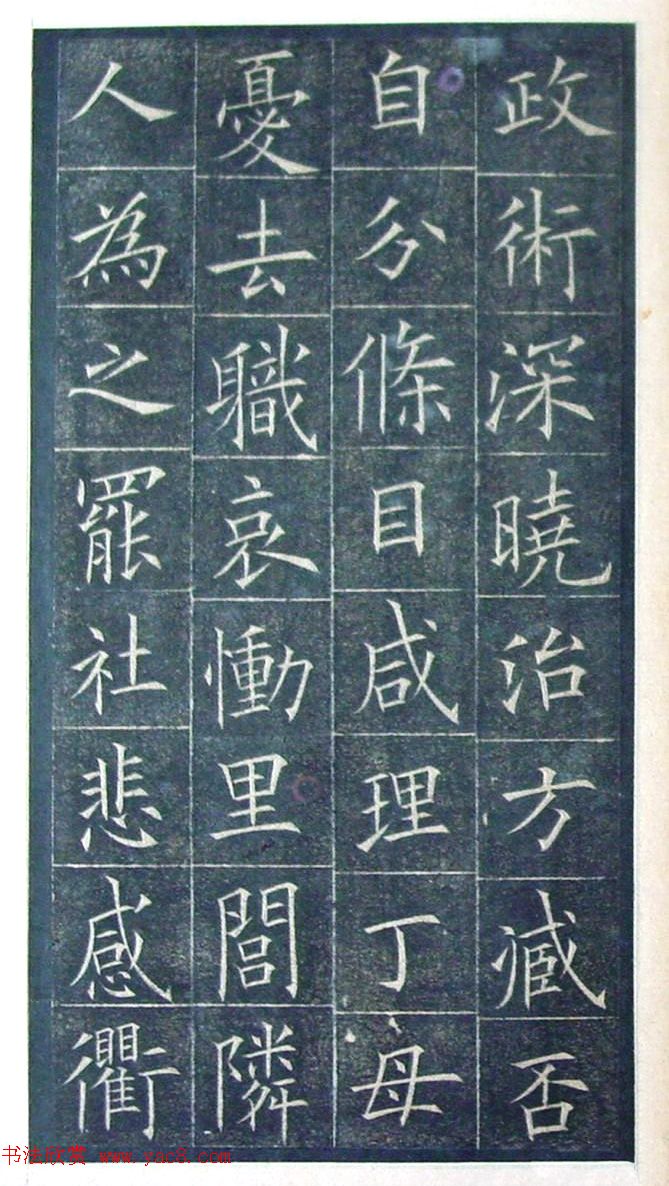 政術深曉治方臧否
自分條目咸理丁母
憂去職哀慟里閭隣
人為之罷社悲感衢
书法欣赏 www.yac8.com